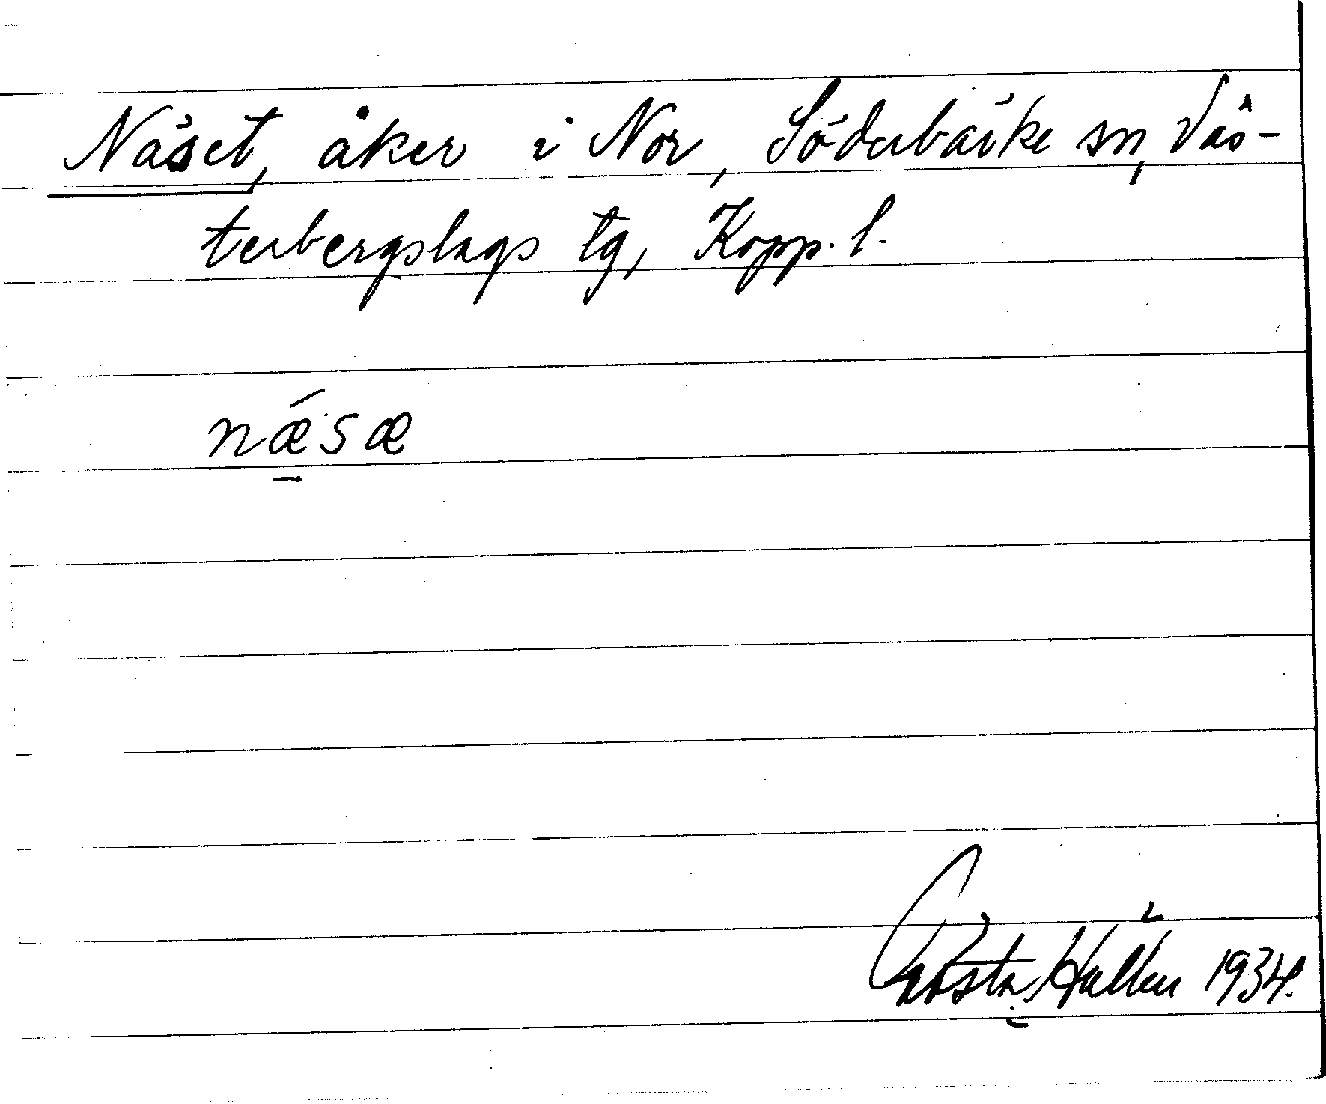 Näset, åker i Nor, Söderbärke sn, Väs-
terbergslags tg, Kopp. l.
nǽ̱sæ
Gösta Hallén 1934.